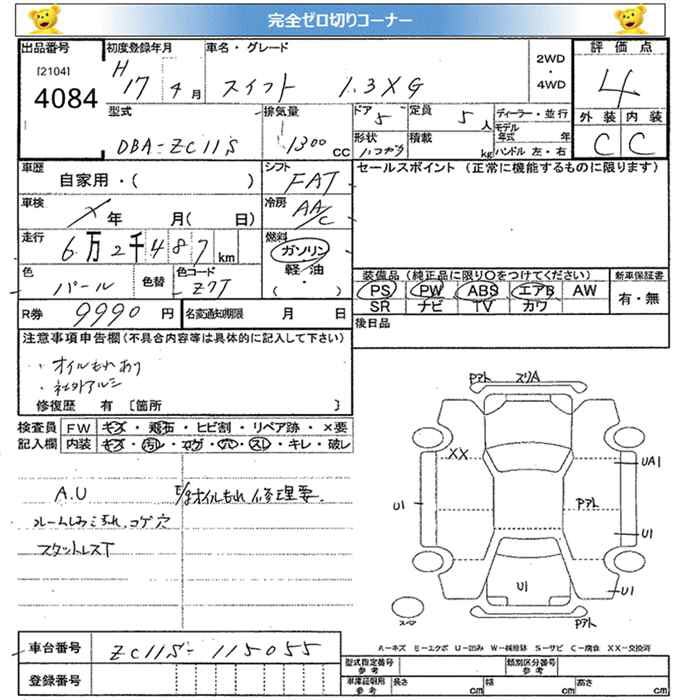 完全ゼロ切りコーナー
出品番号 初度登録年月 車名・グレード 2WD・4WD 評価点
[2104]
4084
H 17 4月 スイフト 1.3XG 4
型式 排気量 ドア 5 定員 5人 ディーラー・並行 外装 内装
DBA-ZC11S 1300 CC 形状 積載 kg モデル年式 年 ハンドル 左・右 C C
車歴 自家用・( ) シフト FAT セールスポイント (正常に機能するものに限ります)
車検 年 月( 日) 冷房 AA/C
走行 6万2千487km 燃料 ガソリン 軽・油 ( ・ )
色 パール 色替 色コード Z7T 装備品 (純正品に限り○をつけてください) 新車保証書
PS PW ABS エアB AW 有・無
SR ナビ TV カワ
R券 9990円 名変通知期限 月 日 後日品
注意事項申告欄(不具合内容等は具体的に記入して下さい)
・オイルもれあり
・社外アルミ
修復歴 有 [箇所 ]
検査員 FW キズ・飛石・ヒビ割・リペア跡・×要
記入欄 内装 キズ・汚レ・コゲ・穴・スレ・キレ・破レ
A.U E/gオイルもれ 修理要
ルームしみこぼれ、コゲ穴
スタットレスT
Pアト スリA
XX
UA1
U1 Pアト
U1
U1 U1
Pアト
スペア
A-キズ E-エクボ U-凹み W-補修跡 S-サビ C-腐食 XX-交換済
車台番号 ZC11S-115055
登録番号
型式指定番号 参考 類別区分番号 参考
車庫証明用 参考 長さ cm 幅 cm 高さ cm